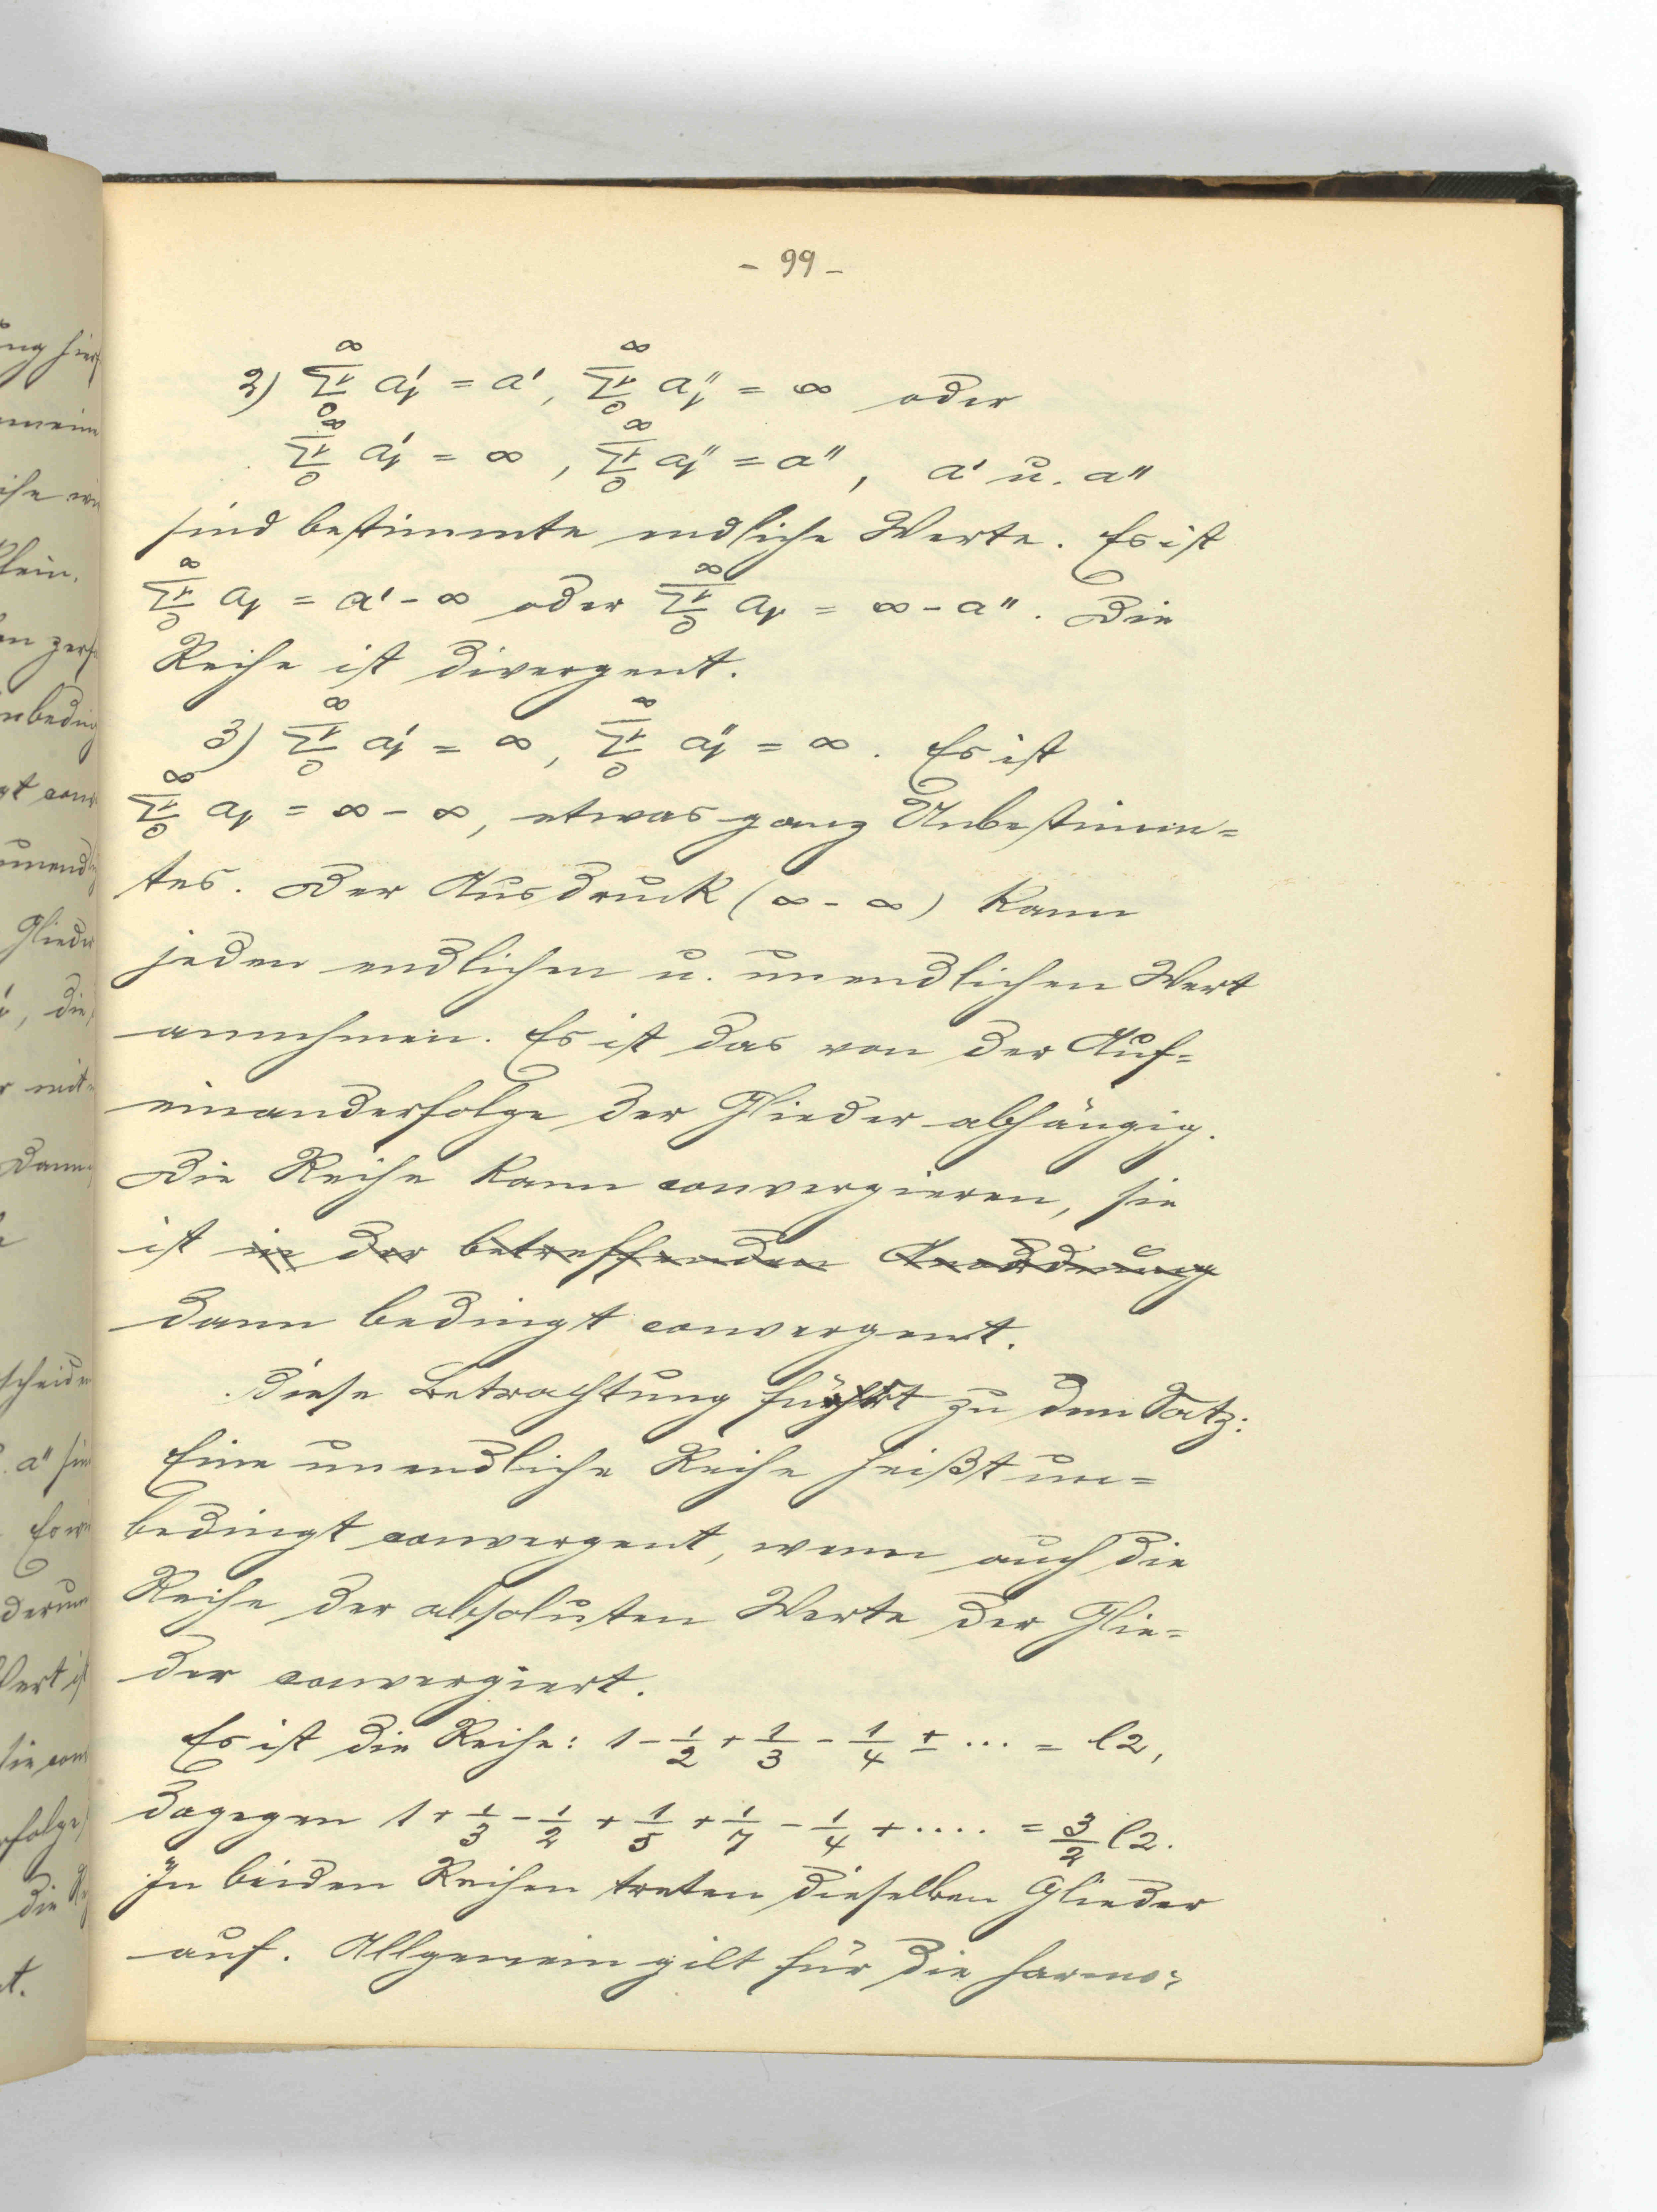 - 99 -
2) ∑_0^∞ ν a'_ν = a', ∑_0^∞ ν a''_ν = ∞ oder
∑_0^∞ ν a'_ν = ∞, ∑_0^∞ ν a''_ν = a'', a' u. a''
sind bestimmte endliche Werte. Es ist
∑_0^∞ ν a_ν = a' - ∞ oder ∑_0^∞ ν a_ν = ∞ - a''. Die
Reihe ist divergent.
3) ∑_0^∞ ν a'_ν = ∞, ∑_0^∞ ν a''_ν = ∞. Es ist
∑_0^∞ ν a_ν = ∞ - ∞, etwas ganz Unbestimm=
tes. Der Ausdruck (∞ - ∞) kann
jeden endlichen u. unendlichen Wert
annehmen. Es ist das von der Auf=
einanderfolge der Glieder abhängig.
Die Reihe kann convergieren, sie
ist in der betreffenden Anordnung
dann bedingt convergent.
Diese Betrachtung führt zu dem Satz:
Eine unendliche Reihe heißt un=
bedingt convergent, wenn auch die
Reihe der absoluten Werte der Glie=
der convergiert.
Es ist die Reihe: 1 - 1/2 + 1/3 - 1/4 ± ... = l2,
dagegen 1 + 1/3 - 1/2 + 1/5 + 1/7 - 1/4 + .... = 3/2 l2.
In beiden Reihen treten dieselben Glieder
auf. Allgemein gilt für die harmo=